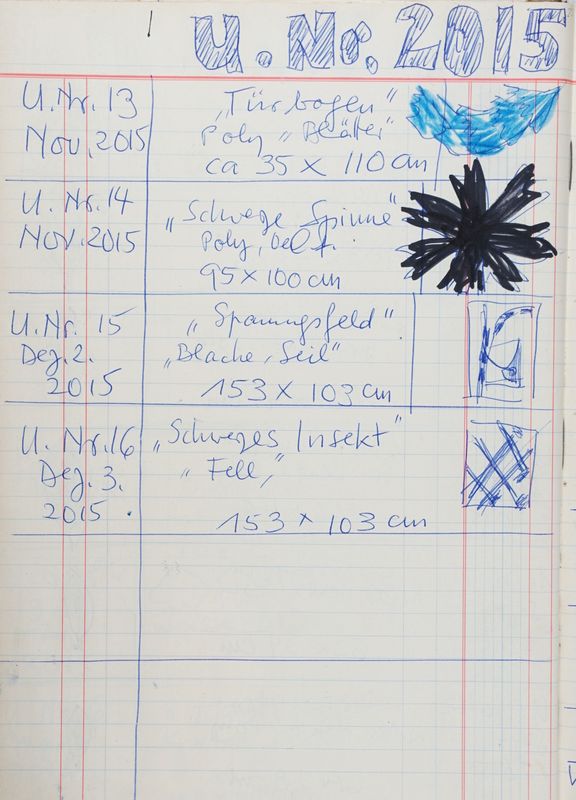 U. Nr. 2015
U.Nr. 13
Nov. 2015
„Türbogen"
Poly „Blätter"
ca 35 x 110 cm
U. Nr. 14
NOV. 2015
„Schwege Spinne"
Poly, Oel f.
95 x 100 cm
U.Nr. 15
Dez. 2.
2015
„Spanungsfeld"
„Blache, Seil"
153 x 103 cm
U. Nr. 16
Dez. 3.
2015.
„Schweges Insekt"
„Fell"
153 x 103 cm